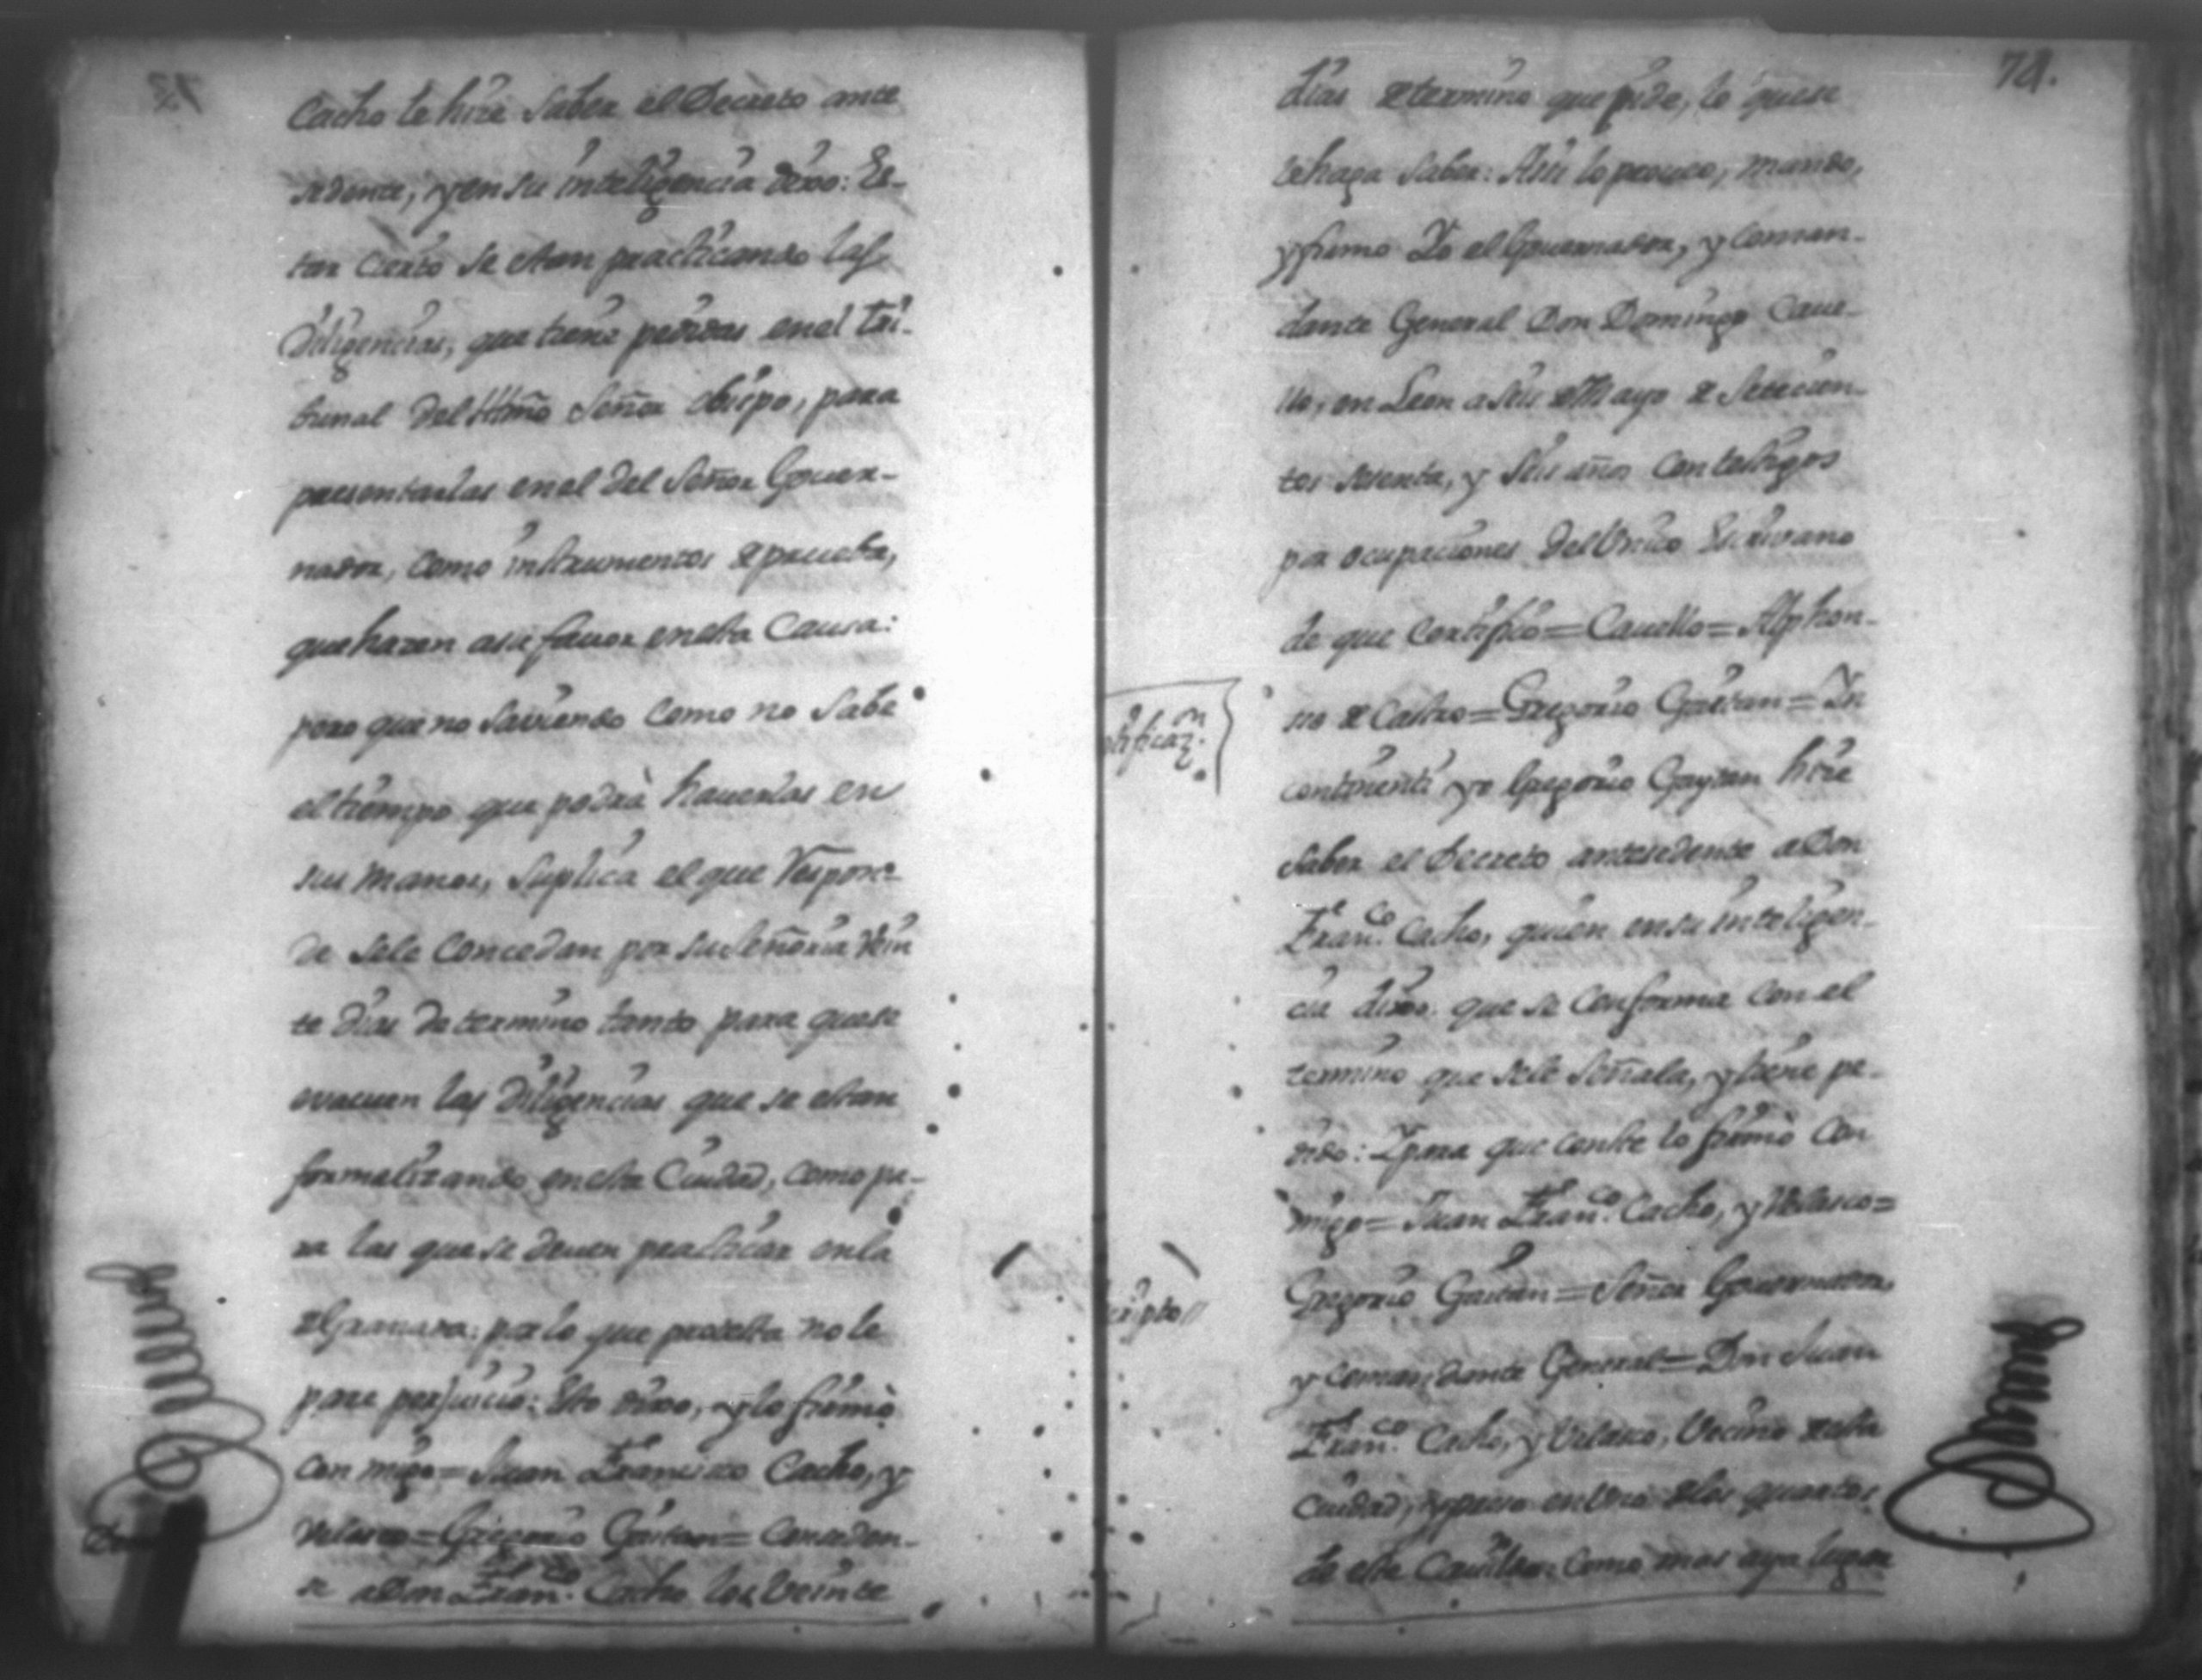 Cacho le hize saber el Decreto ante
sedente, y en su inteligencia dixo: Es-
tar cierto se estan practicando las
Diligencias, que tiene pedidas en el tri-
bunal del Illmõ Señor obispo, para
presentarlas en el del Señor Gover-
nador, como instrumentos de prueba,
que hazen a su favor en esta Causa:
pero que no saviendo como no sabe
el tiempo que podrà haverlas en
sus manos, suplica el que Respon-
de se le concedan por su Señoria vein
te dias de termino tanto para que se
evacuen las Diligencias que se estan
formalizando en esta Ciudad, como pa-
ra las que se deven practicar en la
de Granada: por lo que protesta no le
pare perjuicio: Esto dixo, y lo firmò
con migo= Juan Francisco Cacho, y
Velasco= Gregorio Gaitan= conceden-
se a Don Fran.co Cacho los veinte
74.
dias de termino que pide, lo que se
le haga saber: Assi lo proveo, mando,
y firmo Yo el Governador, y Coman-
dante General Don Domingo Cave-
llo, en Leon a seis de Mayo de Setecien-
tos sesenta, y seis años con testigos
por ocupaciones del Unico Escrivano
de que Certifico= Cavello= Alphon-
so de Castro= Gregorio Gaitan= In
continenti yo Gregorio Gaytan hize
tificaz.on
saber el Decreto antesedente a Don
Fran.co Cacho, quien en su inteligen-
cia dixo: que se conforma con el
termino que se le señala, y tiene pe-
dido: Y para que conste lo firmò con
migo= Juan Fran.co Cacho, y Velasco=
Gregorio Gaitan= Señor Governador,
cripto
y comandante General= Don Juan
Fran.co Cacho, y Velasco, Vecino de esta
Ciudad, y preso en uno de los quartos
de este Cavildo: como mas aya lugar